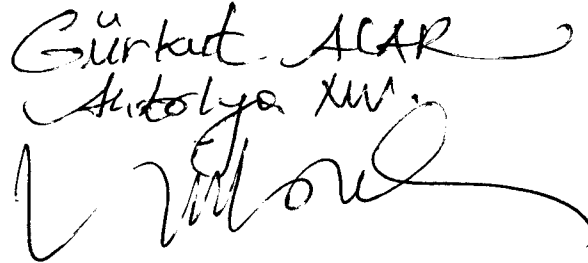 Gürkut ACAR
Antalya